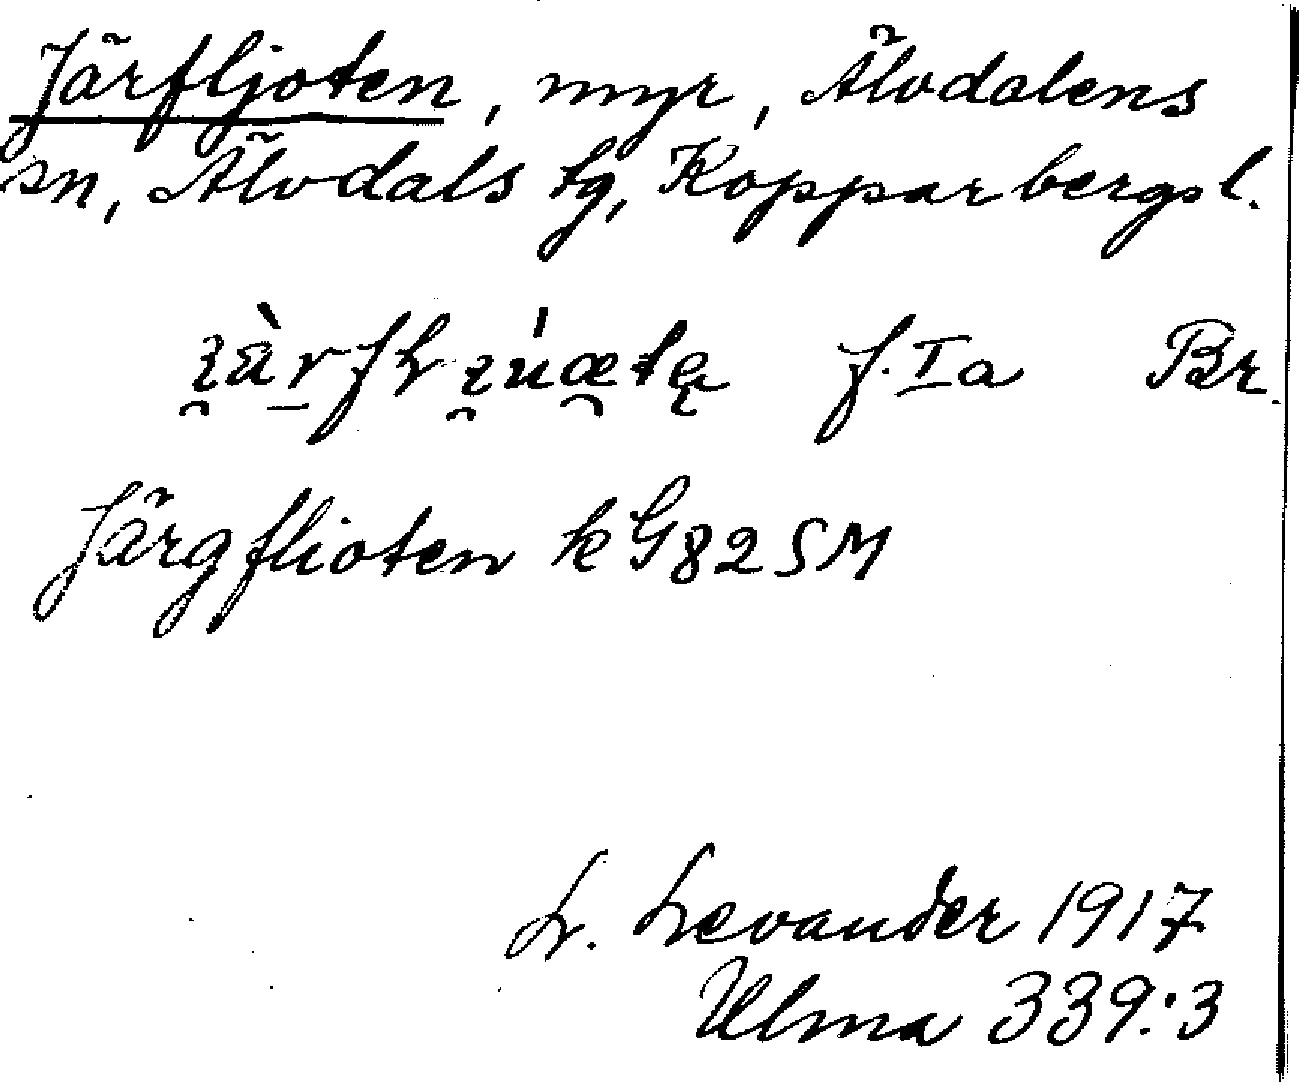 Järfljoten, myr, Älvdalens
sn, Älvdals tg, Kopparbergs l.
f. Ia Br.
Järgflioten kG82SM
L. Levander 1917
Ulma 339:3